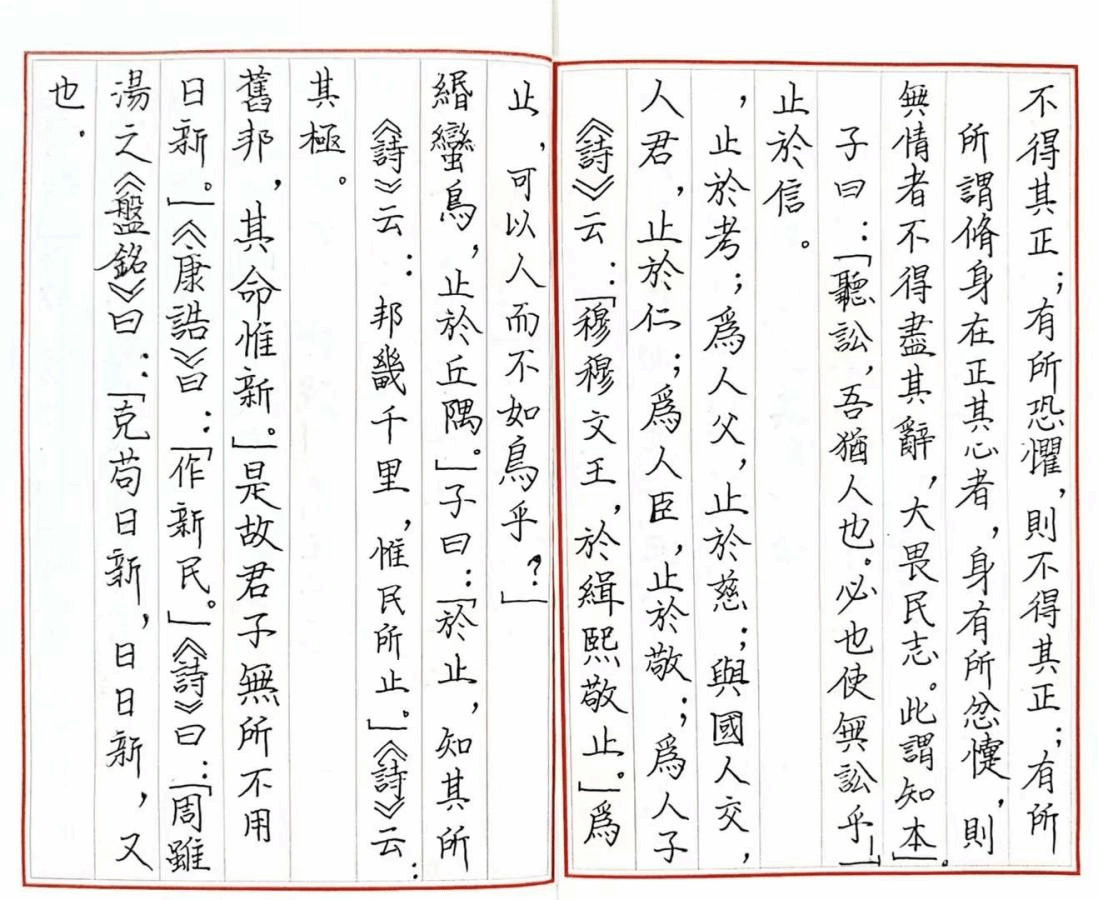 也．
湯之《盤銘》曰：「克苟日新，日日新，又
日新。」《康誥》曰：「作新民。」《詩》曰：「周雖
舊邦，其命惟新。」是故君子無所不用
其極。
《詩》云：邦畿千里，惟民所止。」《詩》云：
緡蠻鳥，止於丘隅。」子曰：「於止，知其所
止，可以人而不如鳥乎？」
《詩》云：「穆穆文王，於緝熙敬止。」爲
人君，止於仁；爲人臣，止於敬；爲人子
，止於考；爲人父，止於慈；與國人交，
止於信。
子曰：「聽訟，吾猶人也。必也使無訟乎！」
無情者不得盡其辭，大畏民志。此謂知本」。
所謂脩身在正其心者，身有所忿懥，則
不得其正；有所恐懼，則不得其正；有所